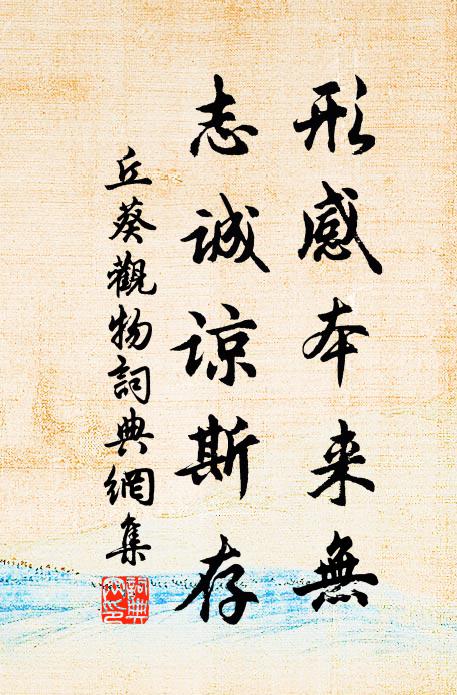 形感本来無
志诚谅斯存
丘葵觀物詞典網集